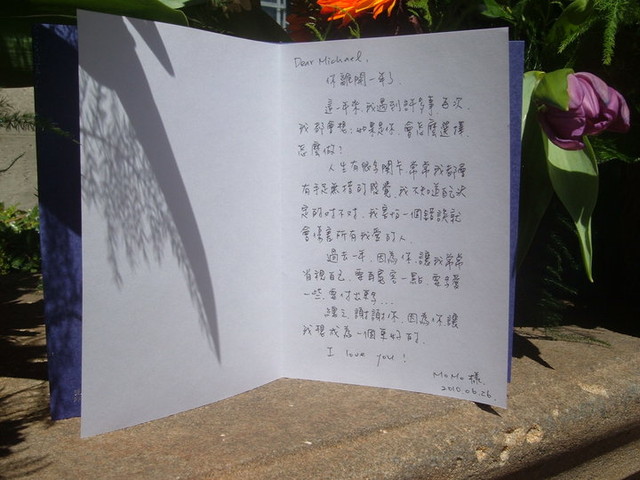 Dear Michael,
你離開一年了.
這一年來,我遇到許多事,每次
我都會想:如果是你,會怎麼選擇,
怎麼做?
人生有很多關卡,常常我都會
有手足無措的感覺,我不知道自己決
定的對不對,我害怕一個錯誤就
會傷害所有我愛的人.
過去一年,因為你,讓我常常
省視自己,要再寬容一點,要多愛
一些,要付出更多...
總之,謝謝你,因為你讓
我想成為一個更好的.
I love you!
MoMo 様.
2010.06.26.